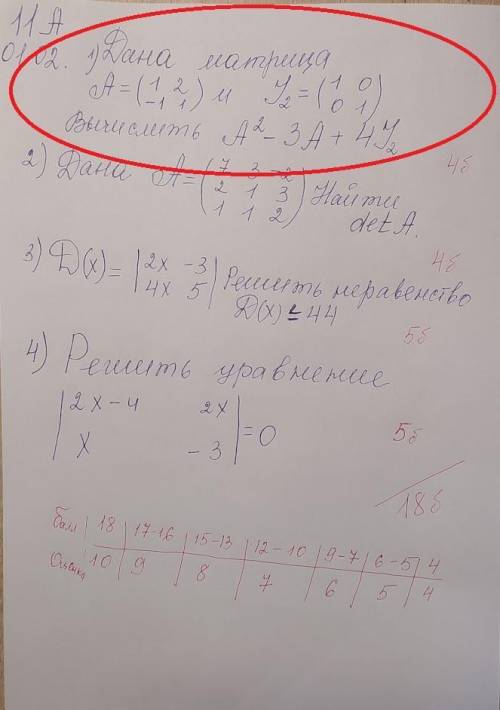 11 А
01.02. 1) Дана матрица
A = (1 2 -1 1) и I₂ = (1 0 0 1)
Вычислить A² - 3A + 4I₂
4б
2) Дана A = (7 3 -2 2 1 3 1 1 2) Найти
det A.
4б
3) D(x) = |2x -3 4x 5| Решить неравенство
D(x) ≤ 44
5б
4) Решить уравнение
|2x - 4 2x
x - 3| = 0
5б
18б
Балл 18 17-16 15-13 12-10 9-7 6-5 4
Оценка 10 9 8 7 6 5 4